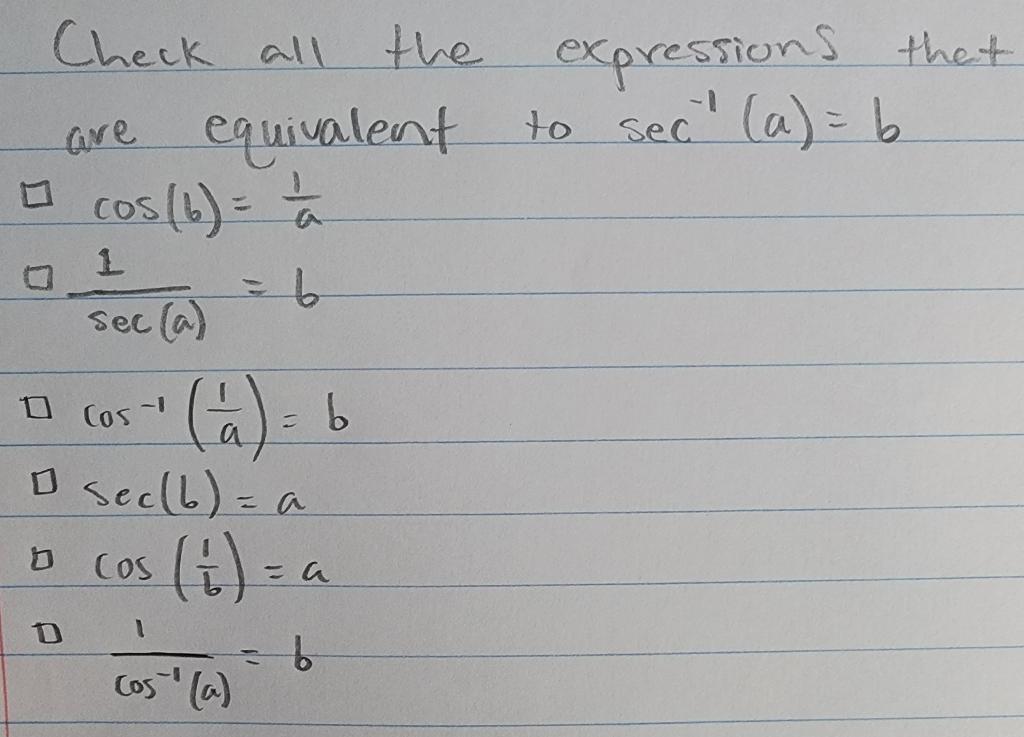 Check all the expressions thet
are equivalent to sec⁻¹(a) = b
□ cos(b) = 1/a
□ 1/sec(a) = b
□ cos⁻¹(1/a) = b
□ sec(b) = a
□ cos(1/b) = a
□ 1/cos⁻¹(a) = b